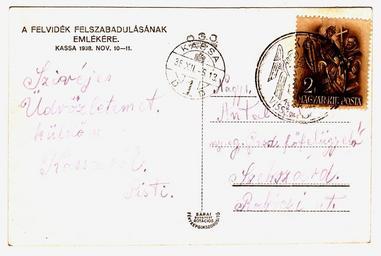 A FELVIDÉK FELSZABADULÁSÁNAK
EMLÉKÉRE.
KASSA 1938. NOV. 10–11.
KASSA
2
MAGYAR KIR. POSTA
Szívélyes
Üdvözletemet
küldöm
Kassáról.
Pisti.
Nagy
Antal
Szekszárd.
Rákóczi ut.
BARAI